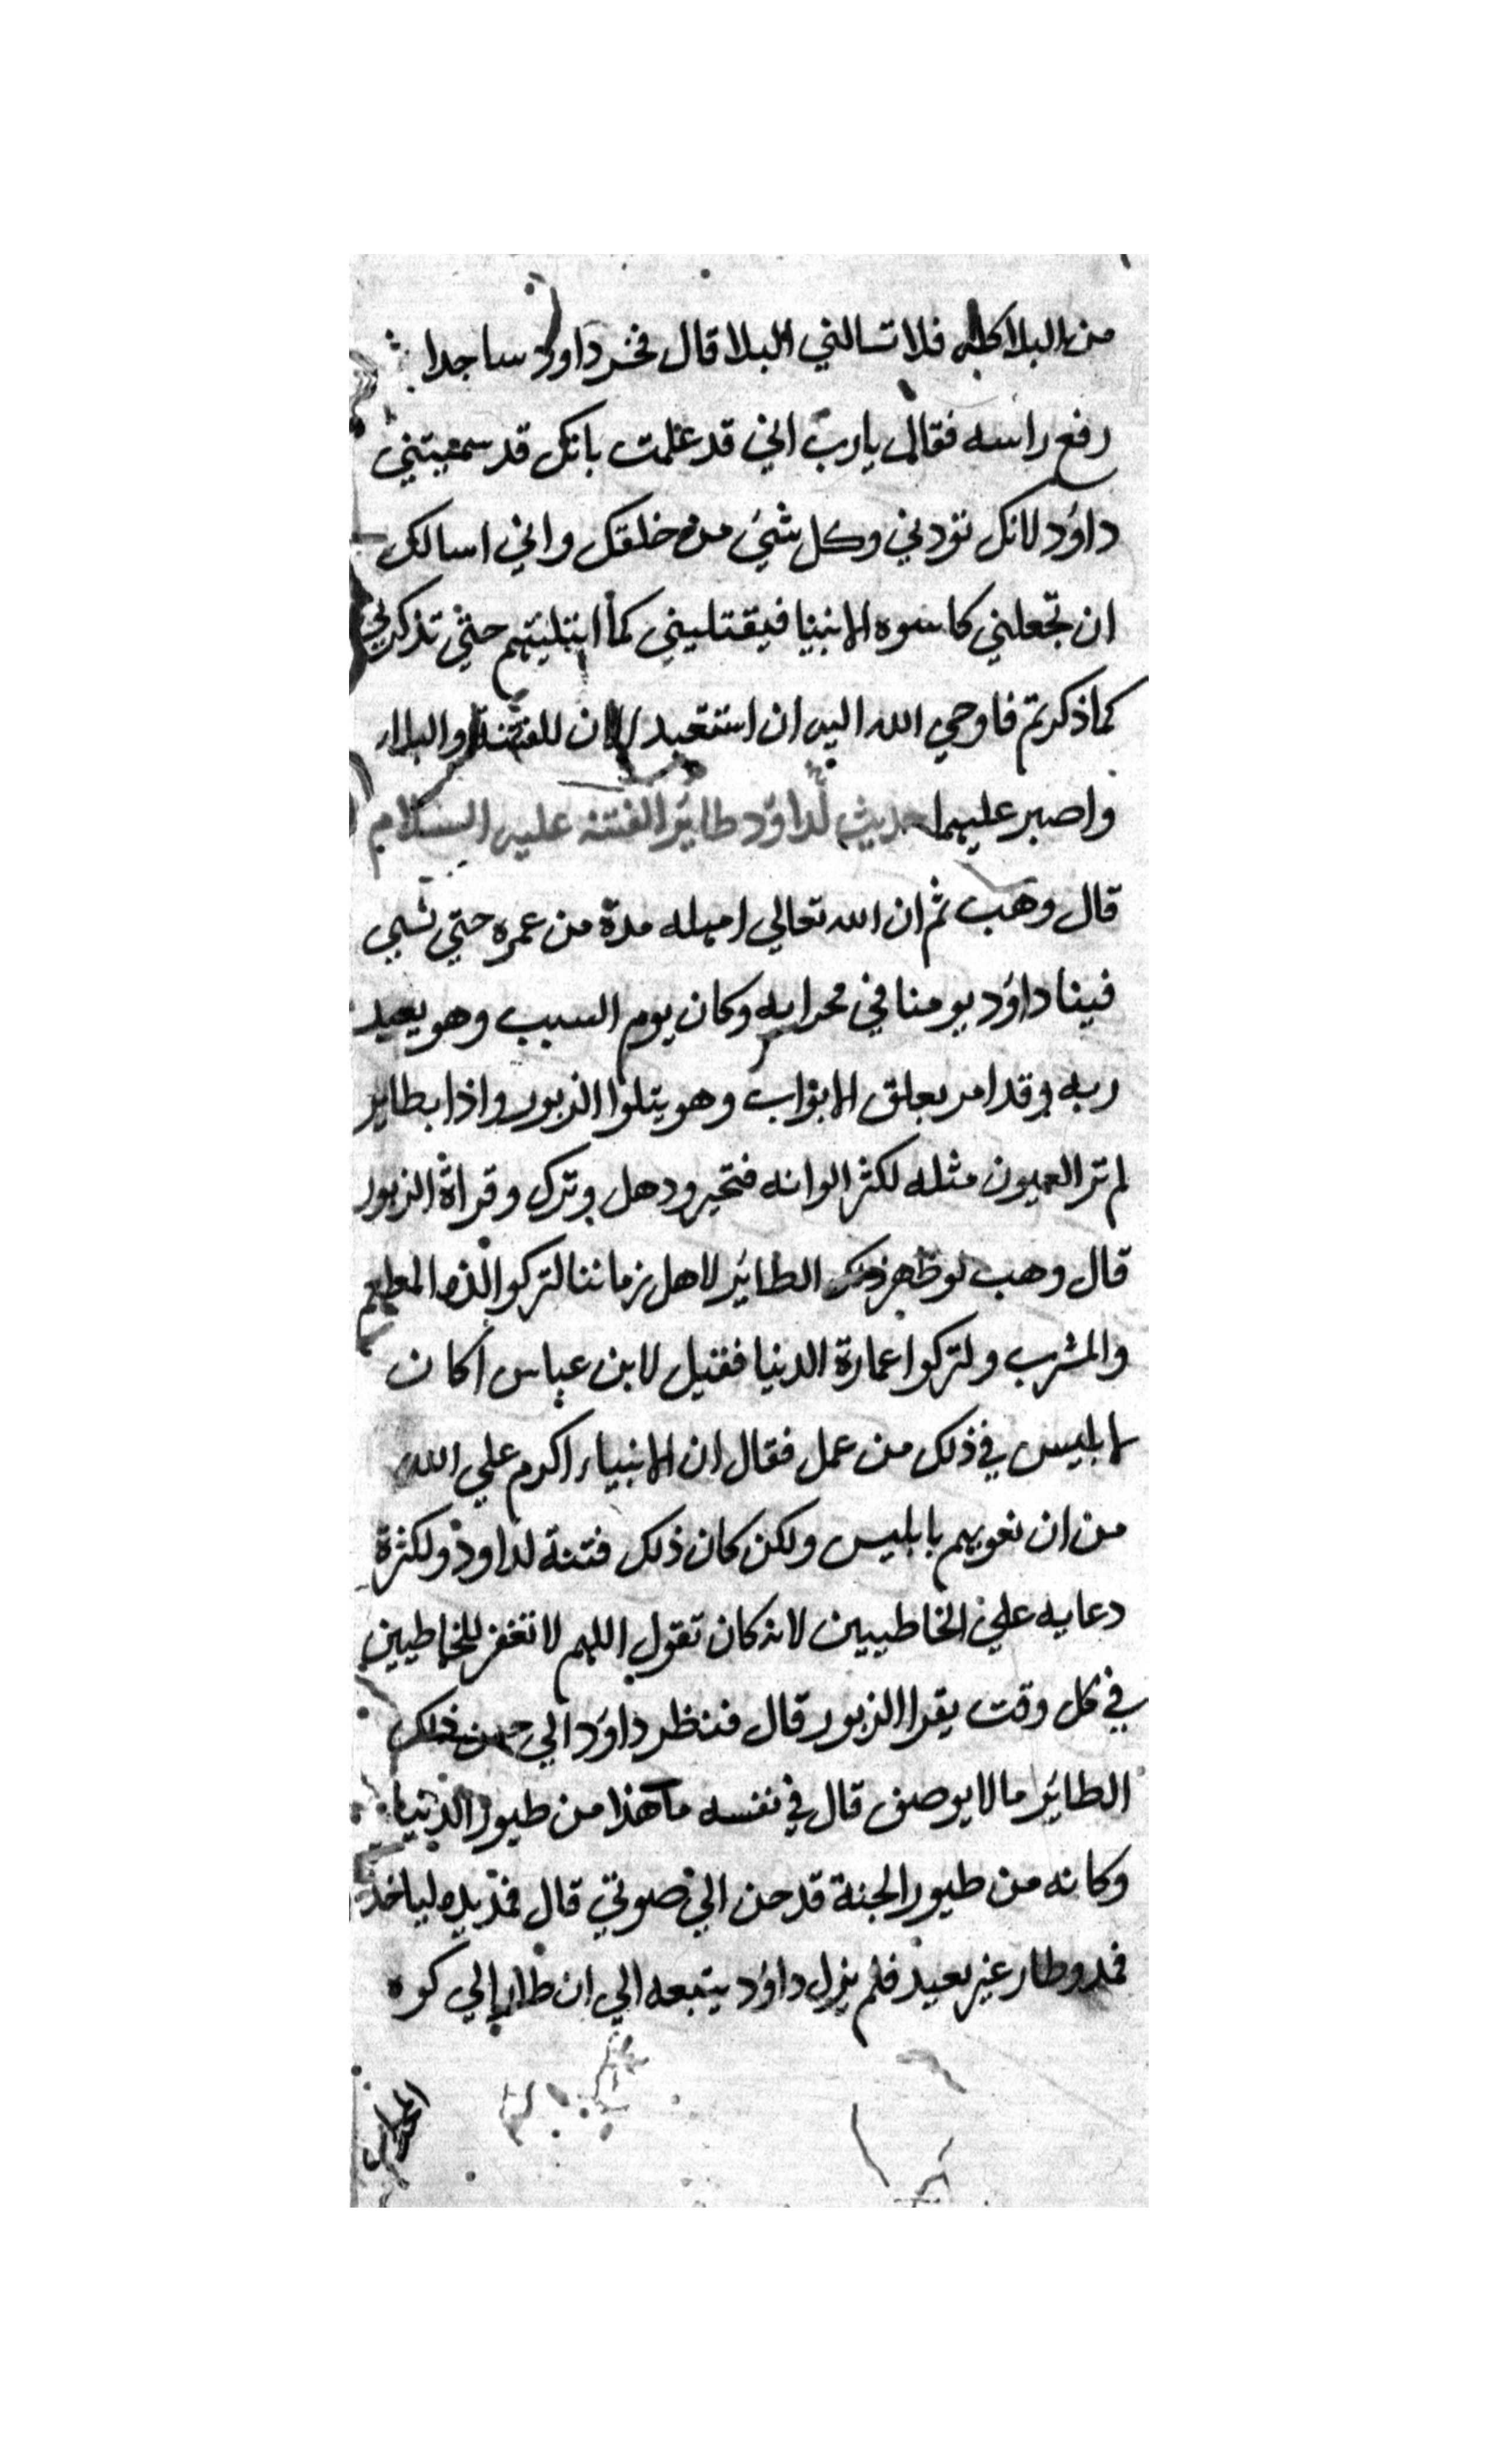 من البلا كله فلا تسالني البلا قال فخر داود ساجدا ثم
رفع راسه فقال يا رب اني قد علمت بانك قد سميتني
داؤد لانك تودني وكل شئ من خلقك واني اسالك
ان تجعلني كاسوه الانبيا فيقتليني كما ابتليتهم حتي تذكرني
كما ذكرتم فاوحي الله اليه ان استعبد للفتنة والبلاء
واصبر عليهما حديث لداؤد طائر الفتنه عليه السلام
قال وهب ثم ان الله تعالي امهله مدة من عمره حتي نسي
فبينا داؤد يومنا في محرابه وكان يوم السبب وهو يعبد
ربه وقد امر بعلق الابواب وهو يتلوا الزبور واذا بطاير
لم تر العيون مثله لكثر الوانه فتحير ودهل وترك وقراة الزبور
قال وهب لو ظهر ذلك الطائر لاهل زماننا لتركوا الذه المطعم
والمشرب ولتركوا عمارة الدنيا فقيل لابن عباس اكان
لابليس في ذلك من عمل فقال ان الانبياء اكرم علي الله
من ان نعويهم بابليس ولكن كان ذلك فتنة لداود ولكثرة
دعايه علي الخاطيين لانه كان تقول اللهم لا تغفر للخاطيين
في كل وقت يقرا الزبور قال فنظر داؤد الي حسن ذلك
الطائر ما لا يوصف قال في نفسه ما هذا من طيور الدنيا
وكانه من طيور الجنة قد حن الي صوتي قال فمد يده لياخذ
فمد وطار غير بعيد فلم يزل داؤد يتبعه الي ان طار الي كوه